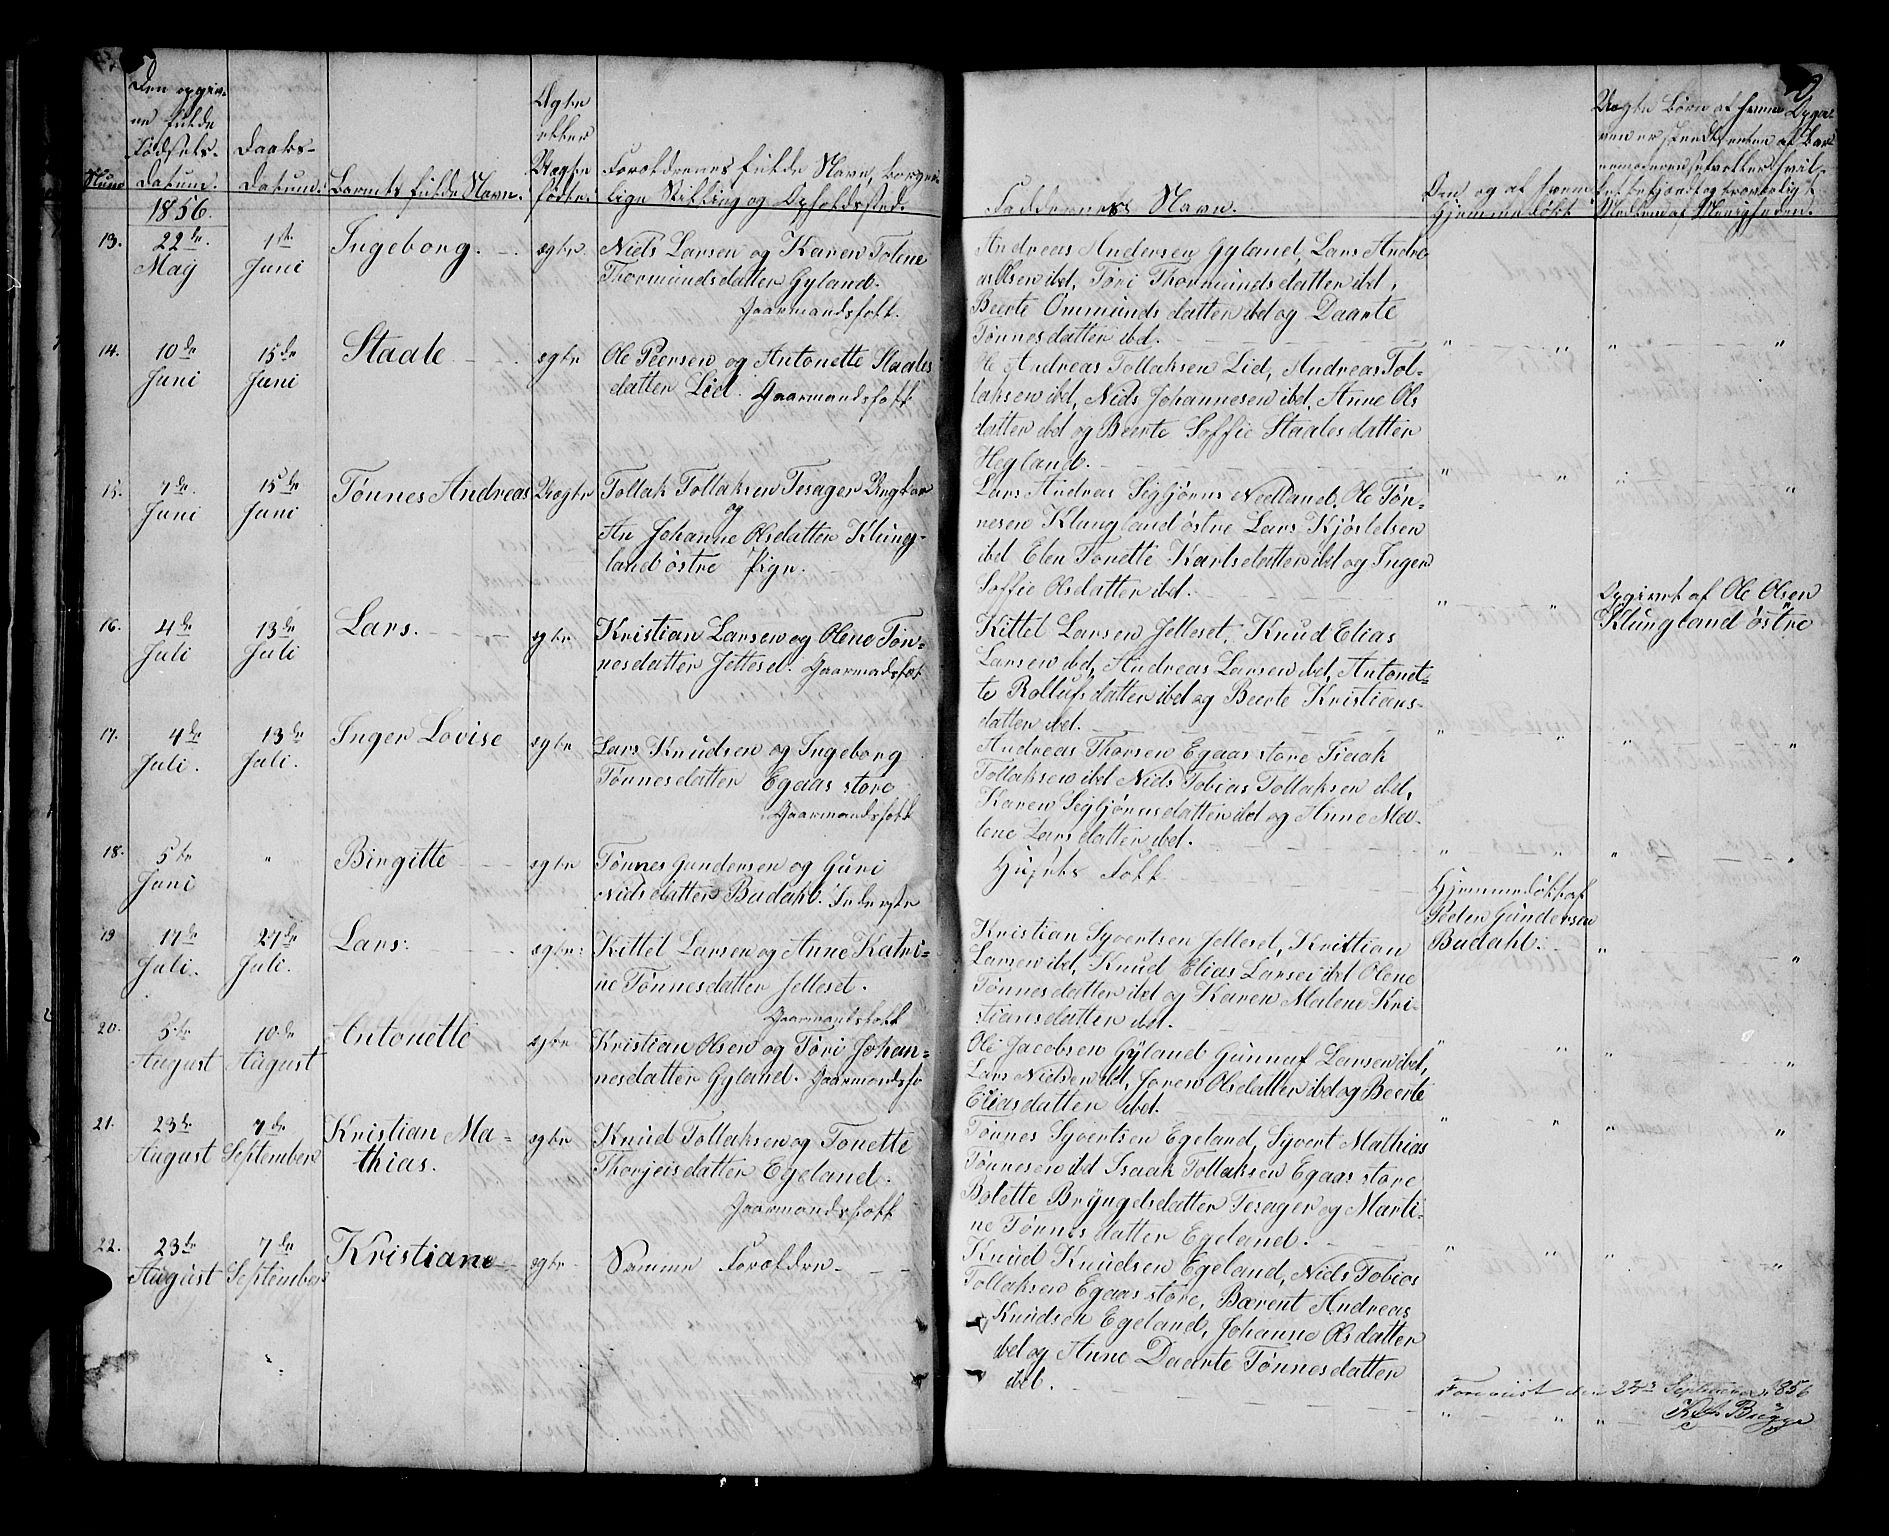 Den opgiv-
ne fulde
Fødsels-
Datum.
Daabs-
Datum.
Barnets fulde Navn.
Ægte
eller
Uægte
født.
Forældrenes fulde Navn, borger-
lige Stilling og Opholdssted.
Faddernes Navn.
Num
1856.
13.
22de
May
1ste
Juni
Ingeborg.
ægte
Niels Larsen og Karen Tolene
Thormundsdatter Gyland.
Gaarmandsfolk.
Andreas Andersen Gyland, Lars Andre
as Olsen ibd, Tøri Thormundsdatter ibd,
Beerte Ommundsdatter ibd og Daarte
Tønnesdatter ibd.
14.
10de
Juni
15de
Juni
Staale
ægte
Ole Peersen og Antonette Staales
datter Lid. Gaarmandsfolk
Ole Andreas Tollaksen Lid, Andreas Tol-
laksen ibd, Niels Johannesen ibd, Anne Ols
datter ibd og Beerte Soffie Staalesdatter
Hegland.
15.
7de
Juni
15de
Juni
Tønnes Andreas
Uægte
Tollak Tollaksen Tesager Ungkar
og
An Johanne Olsdatter Klung-
land østre Pige.
Lars Andreas Sigbjørns Nedland, Ole Tøn-
nesen Klungland østre Lars Kjøstelsen
ibd Elen Tonette Karlsdatter ibd og Inger
Soffie Olsdatter ibd.
Opgivet af Ole Olsen
Klungland østre
16.
4de
Juli
13de
Juli
Lars.
ægte
Kristian Larsen og Olene Tøn-
nesdatter Jelleset. Gaarmandsfol
Kittel Larsen Jelleset, Knud Elias
Larsen ibd, Andreas Larsen ibd, Antonet-
te Rollufsdatter ibd og Beerte Kristians-
datter ibd.
17.
4de
Juli.
13de
Juli.
Inger Lovise
ægte
Lars Knudsen og Ingeborg
Tønnesdatter Egaas store
Gaarmandsfolk
Andreas Thorsen Egaas store Isaak
Tollaksen ibd Niels Tobias Tollaksen ibd,
Karen Sigbjørnsdatter ibd og Anne Ma-
lene Larsdatter ibd.
18.
5te
Juni
Birgitte
ægte
Tønnes Gundersen og Guri
Nielsdatter Budahl. Inderste
Husets Folk
Hjemmedøbt af
Peder Gundersen
Budahl.
19
17de
Juli.
27de
Juli.
Lars.
ægte
Kittel Larsen og Anne Katri-
ne Tønnesdatter Jelleset.
Gaarmandsfolk
Kristian Syvertsen Jelleset, Kristian
Larsen ibd, Knud Elias Larsen ibd Olene
Tønnesdatter ibd og Karen Malene Kri-
stiansdatter ibd.
20.
5te
August
10de
August
Antonette
ægte
Kristian Olsen og Tøri Johan-
nesdatter Gyland. Gaarmandsfo
Ole Jacobsen Gyland Gunnuf Larsen ibd,
Lars Nielsen ibd, Joren Olsdatter ibd og Beerte
Eliasdatter ibd.
21.
23de
August
7de
September
Kristian Ma-
thias.
ægte
Knud Tollaksen og Tonette
Thorjeisdatter Egeland.
Gaarmandsfolk
Tønnes Syvertsen Egeland, Syvert Mathias
Tønnesen ibd Isaak Tollaksen Egaas store
Bolette Bryngelsdatter Tesager og Marti-
ne Tønnesdatter Egeland.
22.
23de
August
7de
September
Kristiane
ægte
Samme Forældre
Knud Knudsen Egeland, Niels Tobias
Tollaksen Egaas store, Bærent Andreas
Knudsen Egeland, Johanne Olsdatter
ibd og Anne Daarte Tønnesdatter
ibd.
Foreviist den 23de September 1856